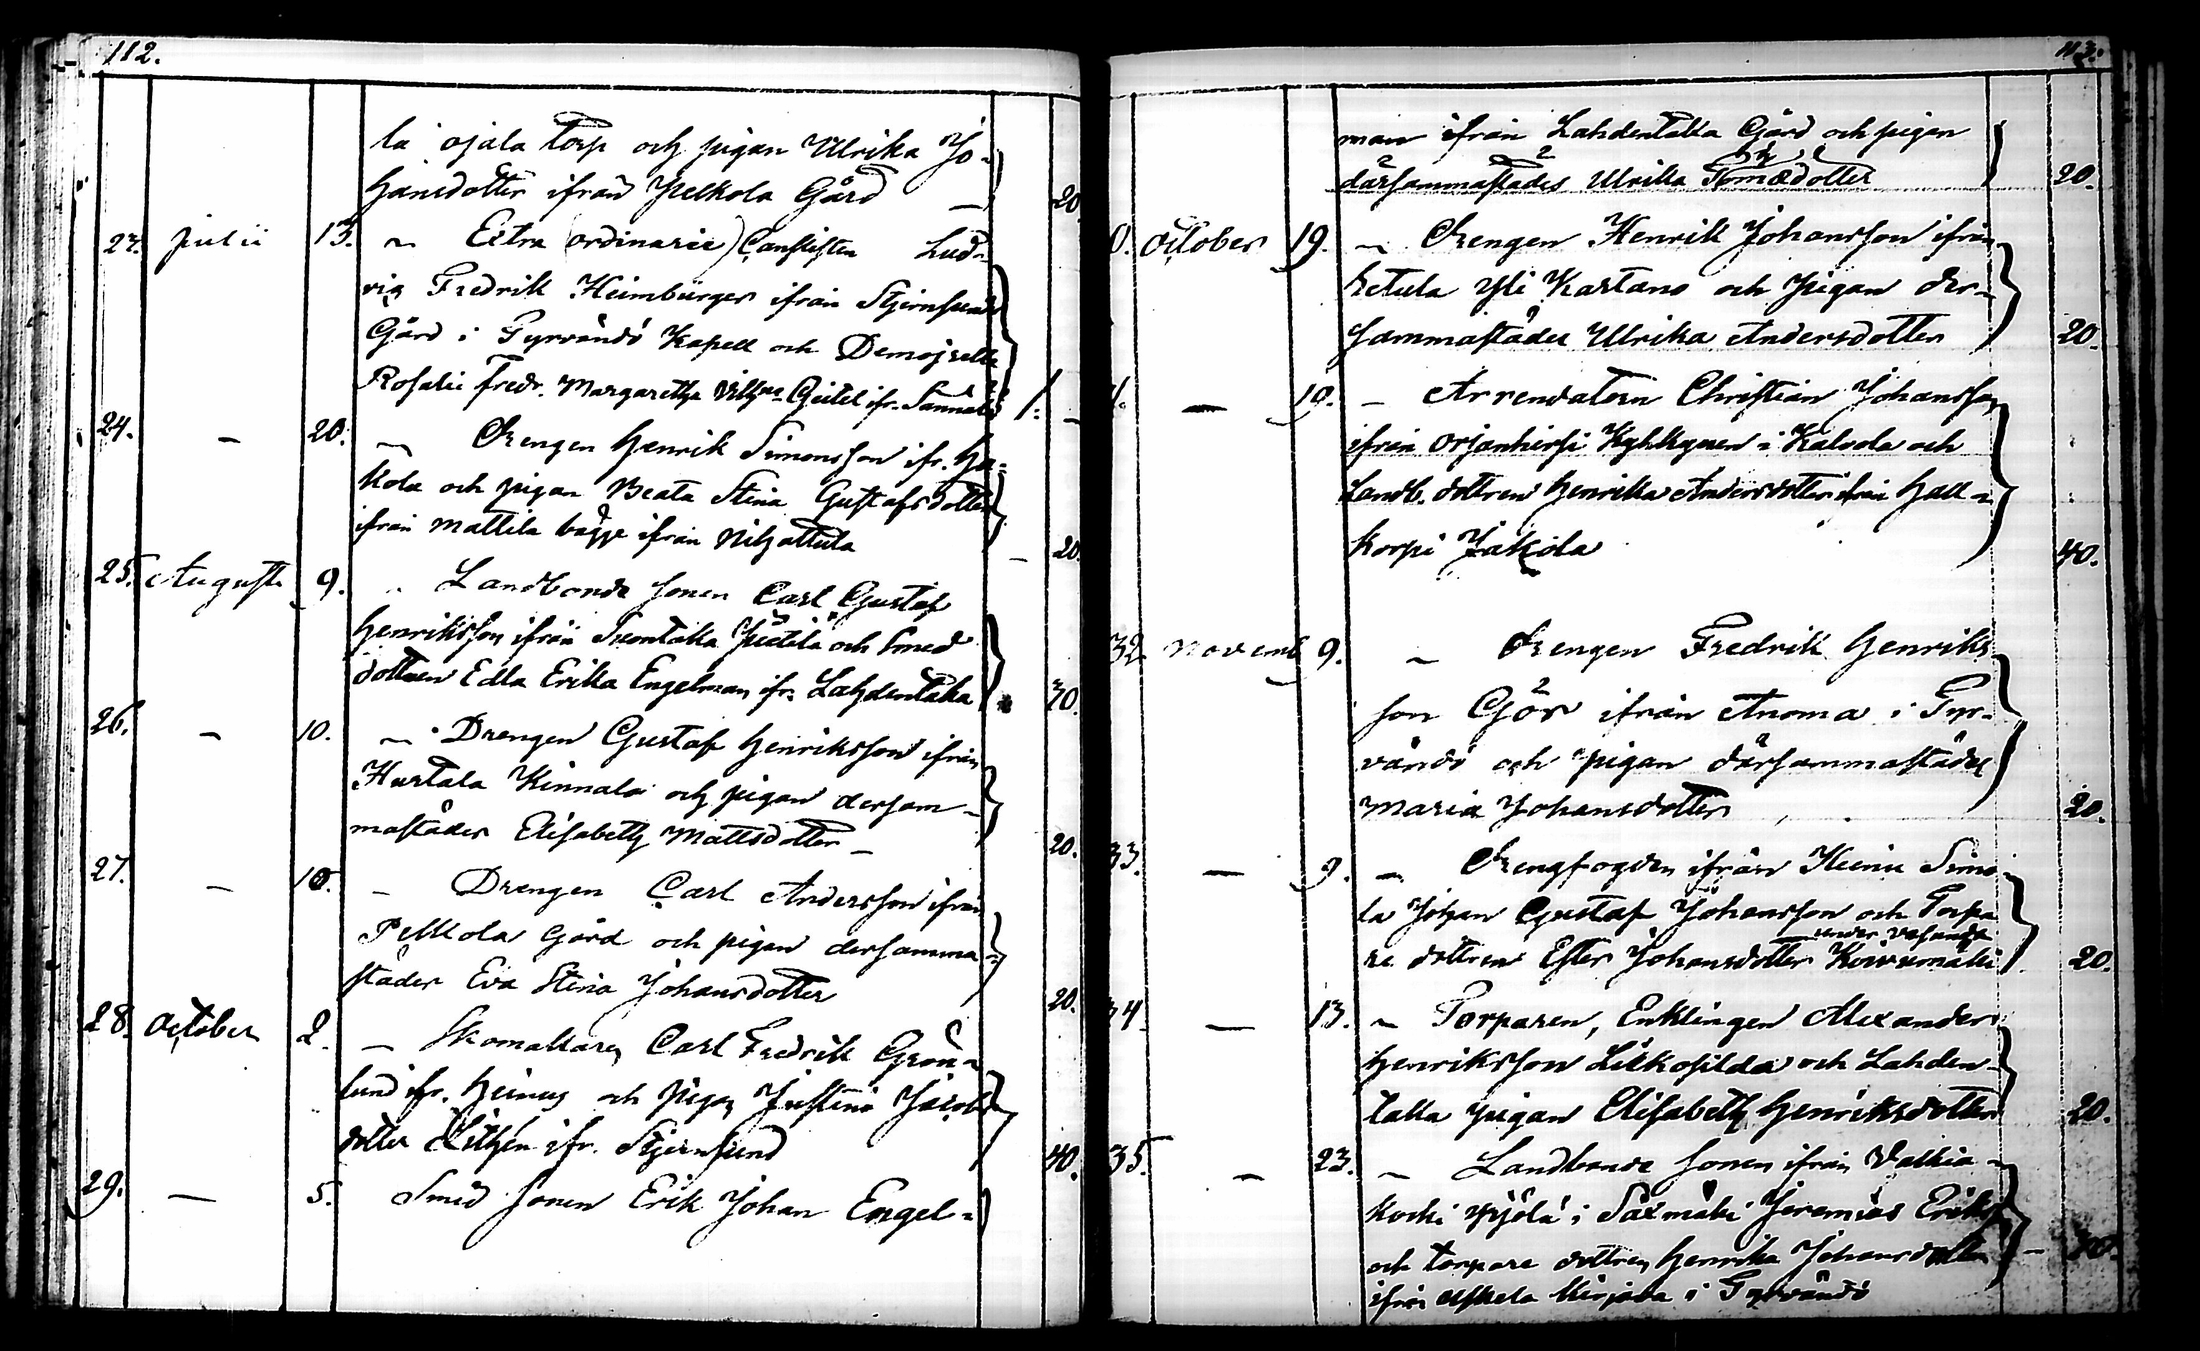 112.
la ojala Torp och pigan Ulrika Jo-
hansdotter ifrån Pelkola Gård — 20.
23. Julii 13. ~ Extra (ordinarie) Canslisten Lud-
vig Fredrik Heimbürger ifrån Stjernsunds
Gård i Tyrvändö Kapell och Demoiselle
Rosalie Fredr. Margaretha Vilhna Geitel ifr. 1. —
24. — 20. ~ Drengen Henrik Simonsson ifr. Ha-
kola och pigan Beata Stina Gustafsdotter
ifrån Mattila bägge ifrån Nihattula — 20.
25. Augusti 9. Landbonde Sonen Carl Gustaf
Henriksson ifrån Suontaka och Smed
dottren Edla Erika Engelman ifr. Lahdentaka 70.
26. — 10. ~ Drengen Gustaf Henriksson ifrån
Hurtala Kinnala och pigan dersam-
mastädes Elisabeth Mattsdotter — 20.
27. — 10. — Drengen Carl Andersson ifrån
Pelkola Gård och pigan dersamma-
städes Eva Stina Johansdotter 20.
28. October 2. — Skomakaren Carl Fredrik Grön-
lund ifr. Heinus och Pigan Justina Jacobs
dotter Lithén ifr. Stjernsund 40.
29. — 5. Smed Sonen Erik Johan Engel-
113.
man ifrån Lahdentaka Gård och pigan
därsammastädes Ulrika dotter 20.
0. October 19. ~ Drengen Henrik Johansson ifrån
Retula Yli Kartano och Pigan der-
sammastädes Ulrika Andersdotter 20.
1. — 19. — Arrendatorn Christian Johansson
ifrån Orjanhirsi Kyhkynen i Kalvola och
Landb. dottren Henrika Andersdotter ifrån Hall-
korpi Jakola 40.
32. Novemb 9. ~ Drengen Fredrik Henriks
son Gös ifrån Annoma i Tyr-
vändö och pigan därsammastädes
Maria Johansdotter 20.
33. — 9. ~ Drengfogden ifrån Heinu Simo
la Johan Gustaf Johansson och Torpa
under
re dottren Ester Johansdotter Koivumäki 20.
34. — 13. ~ Torparen, Enklingen Alexander
Henriksson Liekosilda och Lahden-
taka pigan Elisabeth Henriksdotter 20.
35. — 23. ~ Landbonde Sonen ifrån Valkia-
koski Yjölä i Säxmäki Jeremias Eriks
och torpare dottren Henrika Johansdotter —
ifrån Uskela Kirjava i Tyrvändö